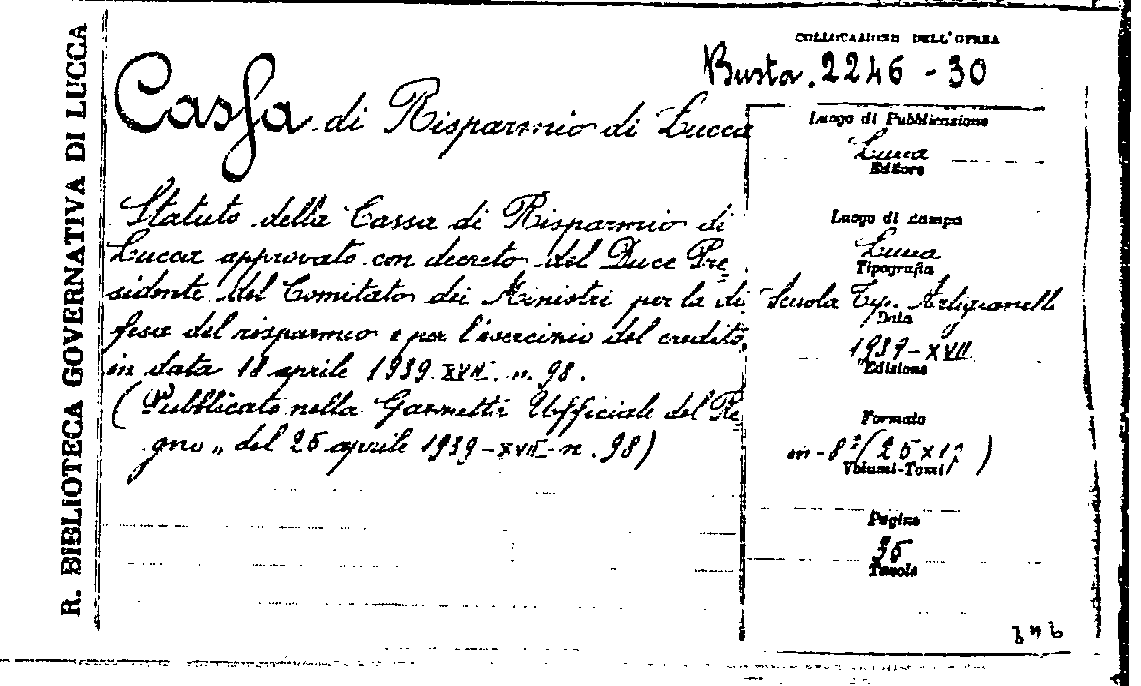 R. BIBLIOTECA GOVERNATIVA DI LUCCA
COLLOCAZIONE DELL'OPERA
Busta. 2246 - 30
Cassa di Risparmio di Lucca
Statuto della Cassa di Risparmio di
Lucca approvato con decreto del Duce Pre
sidente del Comitato dei Ministri per la di
fesa del risparmio e per l'esercizio del credito,
in data 18 aprile 1939. XVII. n. 98.
(Pubblicato nella Gazzetta Ufficiale del Re
gno „ del 26 aprile 1939 - XVII - n. 98)
Luogo di Pubblicazione
Lucca
Editore
Luogo di stampa
Lucca
Tipografia
Scuola Tip. Artigianelli
Data
1939 - XVII
Edizione
Formato
in - 8° (25 x 17)
Volumi-Tomi
Pagine
Tavole